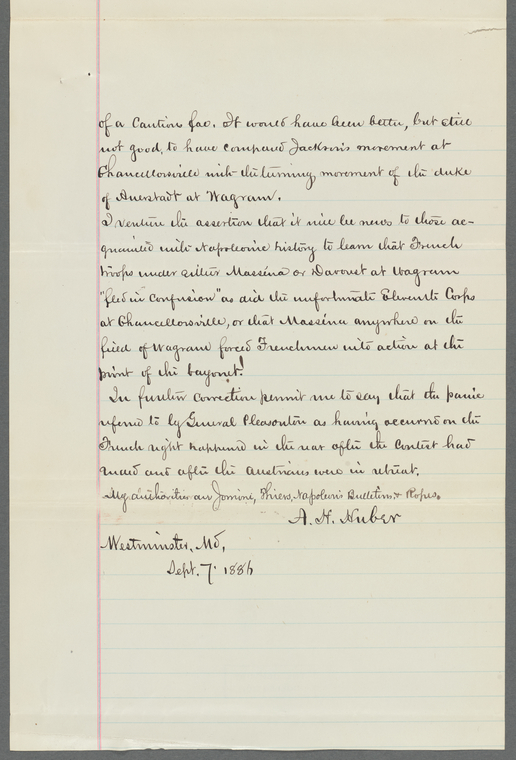 of a Cautious foe. It would have been better, but still
not good, to have compared Jackson's movement at
Chancellorsville with the turning movement of the duke
of Auerstadt at Wagram.
I venture the assertion that it will be news to those ac-
quainted with Napoleonic history to learn that French
troops under either Massena or Davoust at Wagram
"fled in confusion" as did the unfortunate Eleventh Corps
at Chancellorsville, or that Massena anywhere on the
field of Wagram forced Frenchmen into action at the
point of the bayonet!
In further correction permit me to say that the panic
referred to by General Pleasonton as having occurred on the
French right happened in the rear after the Contest had
ended and after the Austrians were in retreat.
My authorities are Jomini, Thiers, Napoleon's Bulletins & Ropes.
A. H. Huber
Westminster, Md,
Sept. 7. 1886